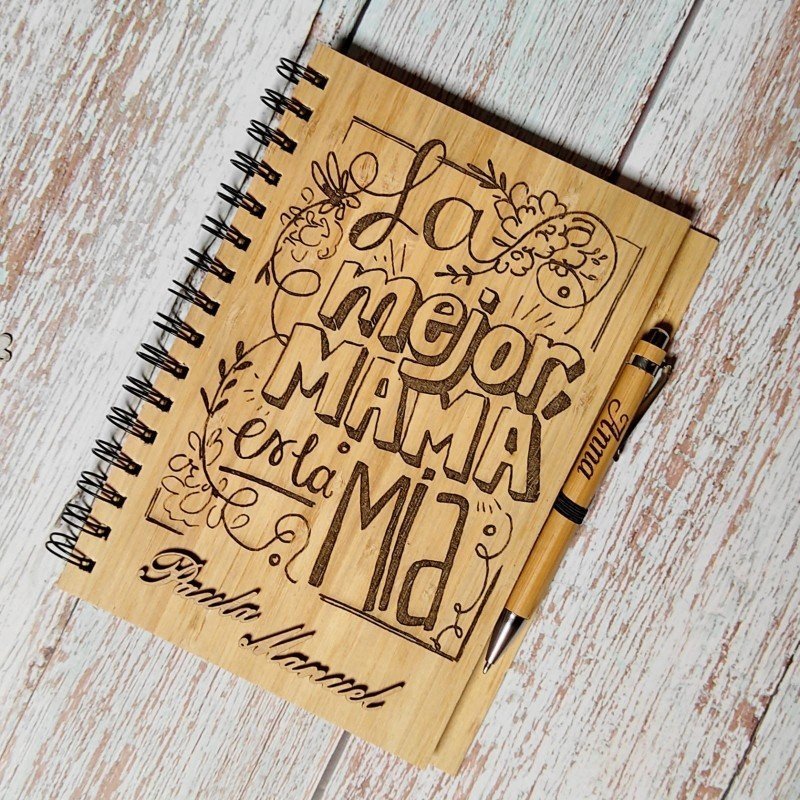 La
mejor
MAMÁ
es la
Mia
Paula Manuel
Anna